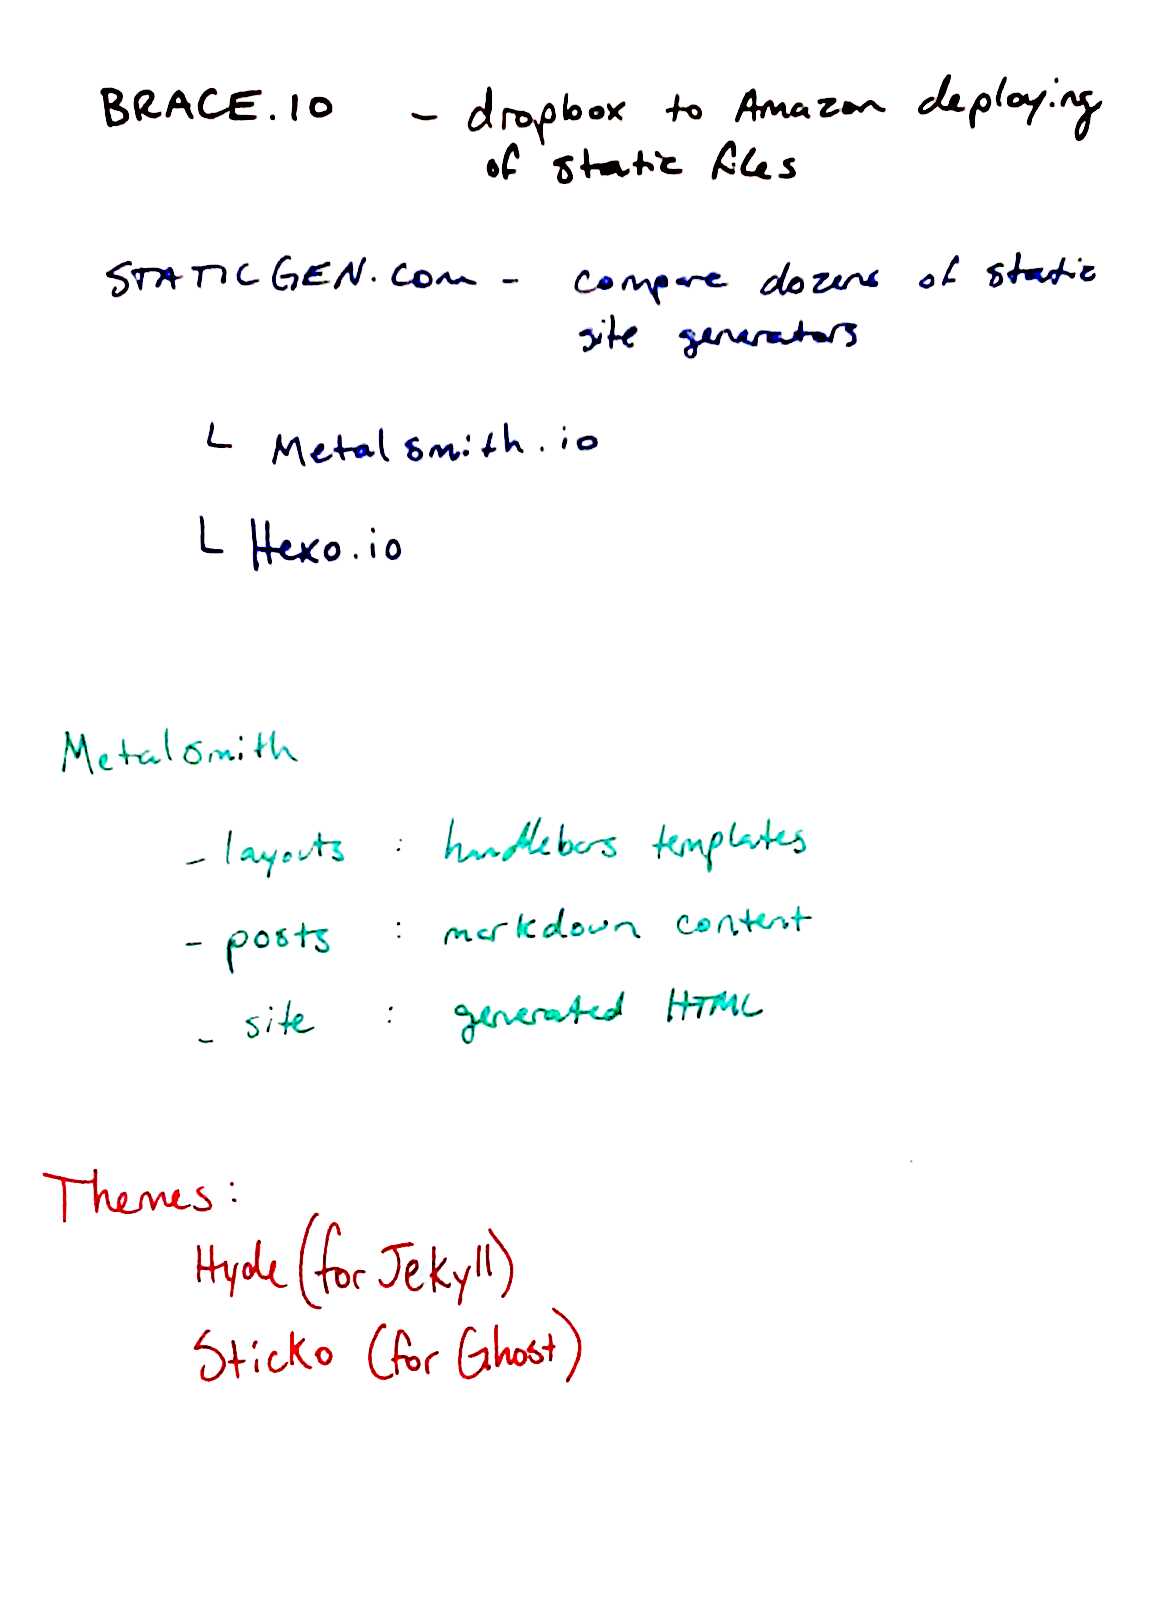 BRACE.IO - dropbox to Amazon deploying
of static files
STATICGEN.COM - compare dozens of static
site generators
└ Metalsmith.io
└ Hexo.io
Metalsmith
- layouts : handlebars templates
- posts : markdown content
- site : generated HTML
Themes:
Hyde (for Jekyll)
Sticko (for Ghost)